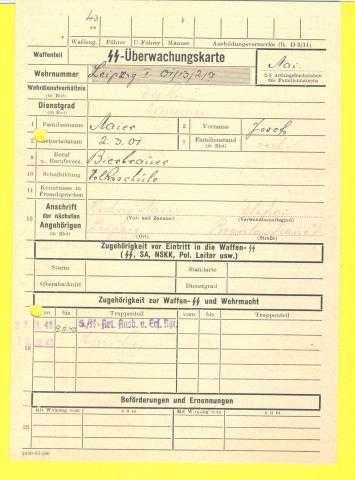 43
Waffeng. Führer U.-Führer Männer Ausbildungsvermerke (lt. D 3/11)
Waffenteil ᛋᛋ-Überwachungskarte
Mai.
2-3 Anfangsbuchstaben des Familiennamens
Wehrnummer Leipzig I 01/13/2/7
Wehrdienstverhältnis
(in Blei)
Dienstgrad
(in Blei)
1 Familienname Maier 2 Vorname Josef
3 Geburtsdatum 2.3.01 7 Familienstand (in Blei) verh.
8 Beruf u. Berufsverz. Bierbrauer
10 Schulbildung Volksschule
11 Kenntnisse in Fremdsprachen
13 Anschrift der nächsten Angehörigen (in Blei)
(Vor- und Zuname) (Verwandtschaftsgrad)
Leipzig
(Ort) (Straße)
Zugehörigkeit vor Eintritt in die Waffen-ᛋᛋ
(ᛋᛋ, SA, NSKK, Pol. Leiter usw.)
Sturm Standarte
Oberabschnitt Dienstgrad
Zugehörigkeit zur Waffen-ᛋᛋ und Wehrmacht
vom bis Truppenteil vom bis Truppenteil
19
Beförderungen und Ernennungen
Mit Wirkung vom zum Mit Wirkung vom zum
23